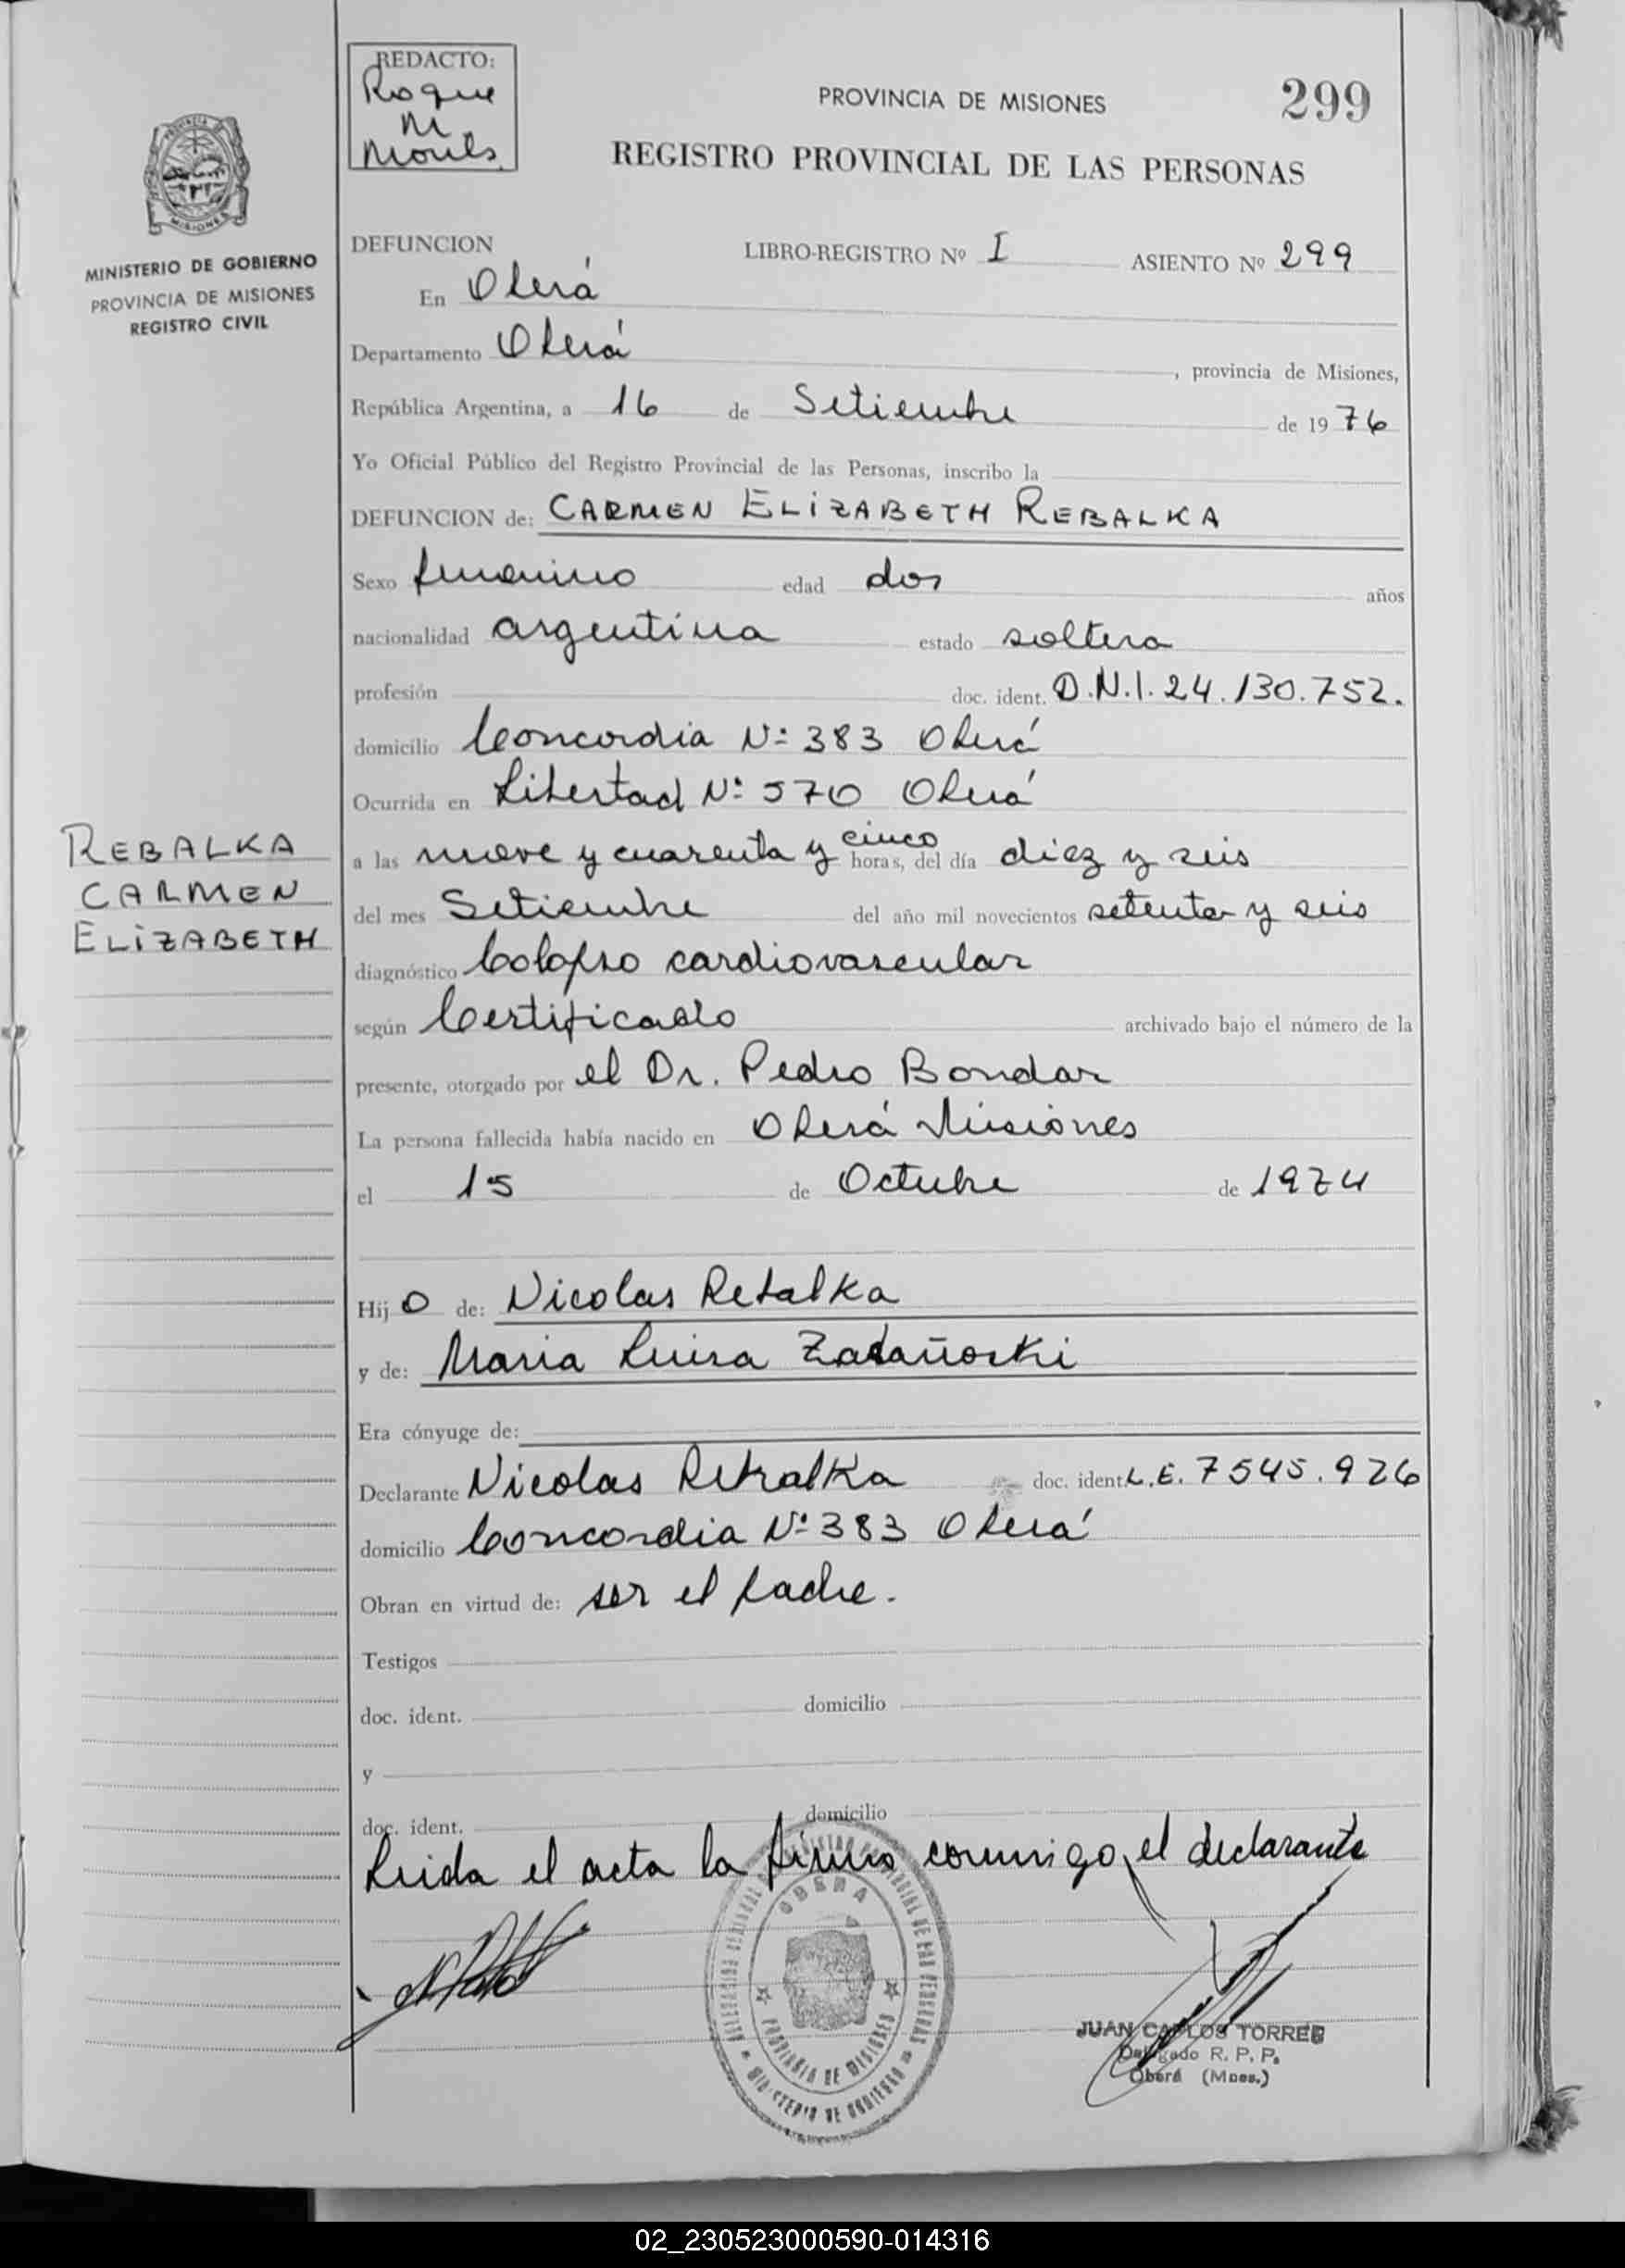 REDACTO:
Roque
M.
PROVINCIA DE MISIONES
299
REGISTRO PROVINCIAL DE LAS PERSONAS
MISIONES
MINISTERIO DE GOBIERNO
PROVINCIA DE MISIONES
REGISTRO CIVIL
DEFUNCION LIBRO-REGISTRO Nº I ASIENTO Nº 299
En Oberá
Departamento Oberá , provincia de Misiones,
República Argentina, a 16 de Setiembre de 1976
Yo Oficial Público del Registro Provincial de las Personas, inscribo la
DEFUNCION de: CARMEN ELIZABETH REBALKA
Sexo femenino edad dos años
nacionalidad argentina estado soltera
profesión doc. ident. D.N.I. 24.130.752.
domicilio Concordia Nº 383 Oberá
Ocurrida en Libertad Nº 570 Oberá
a las nueve y cuarenta y cinco horas, del día diez y seis
del mes Setiembre del año mil novecientos setenta y seis
diagnóstico Colapso cardiovascular
según Certificado archivado bajo el número de la
presente, otorgado por el Dr. Pedro Bondar
La persona fallecida había nacido en Oberá Misiones
el 15 de Octubre de 1974
REBALKA
CARMEN
ELIZABETH
Hijo de: Nicolas Rebalka
y de: Maria Luisa
Era cónyuge de:
Declarante Nicolas Rebalka doc. ident. L.E. 7545.926
domicilio Concordia Nº 383 Oberá
Obran en virtud de: ser el padre.
Testigos
doc. ident. domicilio
y
doc. ident. domicilio
Leida el acta la firma conmigo, el declarante
OBERA
PROVINCIA DE MISIONES
JUAN CARLOS TORRES
Delegado R. P. P.
Oberá (Mnes.)
02_230523000590-014316